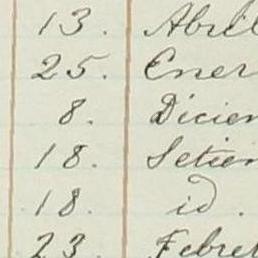 13. Abril
25. Ener
8. Dicien
18. Setien
18. id.
23. Febre